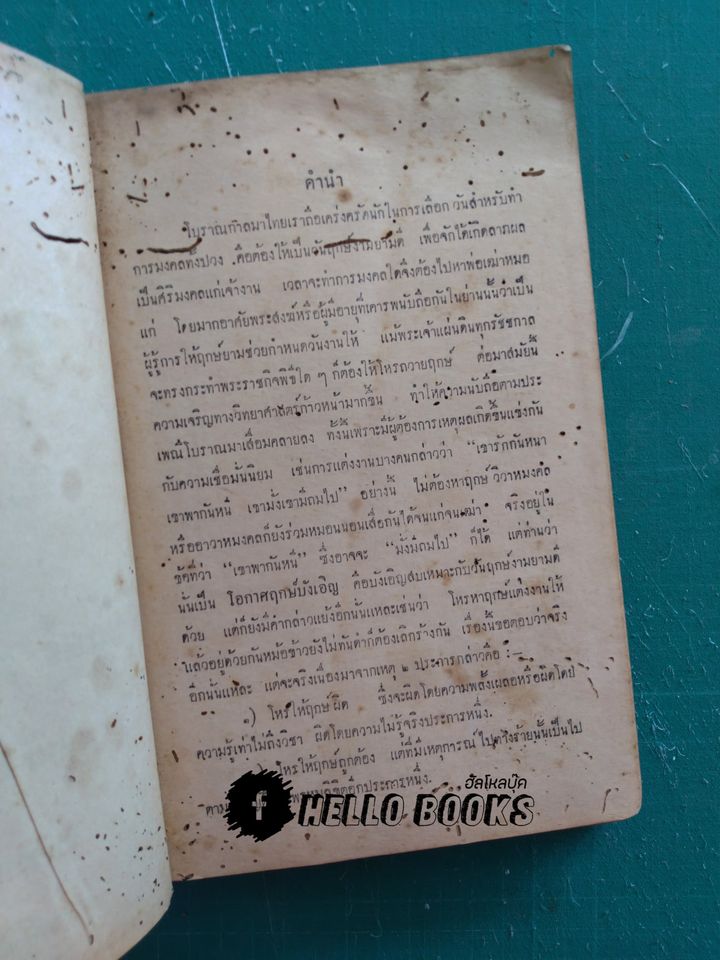 คำนำ
โบราณกาลมาไทยเราถือเคร่งครัดนักในการเลือก วันสำหรับทำ
การมงคลทั้งปวง คือต้องให้เป็นวันฤกษ์งามยามดี เพื่อจักได้เกิดลาภผล
เป็นศิริมงคลแก่เจ้างาน เวลาจะทำการมงคลใดจึงต้องไปหาพ่อเฒ่าหมอ
แก่ โดยมากอาศัยพระสงฆ์หรือผู้มีอายุที่เคารพนับถือกันในย่านนั้นว่าเป็น
ผู้รู้การให้ฤกษ์ยามช่วยกำหนดวันงานให้ แม้พระเจ้าแผ่นดินทุกรัชชกาล
จะทรงกระทำพระราชกิจพิธีใด ๆ ก็ต้องให้โหรถวายฤกษ์ ต่อมาสมัยนี้
ความเจริญทางวิทยาศาสตร์ก้าวหน้ามากขึ้น ทำให้ความนับถือตามประ
เพณีโบราณมาเสื่อมคลายลง ทั้งนี้เพราะมีผู้ต้องการเหตุผลเกิดขึ้นแข่งกัน
กับความเชื่อมั่นนิยม เช่นการแต่งงานบางคนกล่าวว่า “เขารักกันหนา
เขาพากันหนี เขามั่งเขามีถมไป” อย่างนี้ ไม่ต้องหาฤกษ์ วิวาหมงคล
หรืออาวาหมงคลก็ยังร่วมหมอนนอนเสื่อกันได้จนแก่จนเฒ่า จริงอยู่ใน
ข้อที่ว่า “เขาพากันหนี” ซึ่งอาจจะ “มั่งมีถมไป” ก็ได้ แต่ท่านว่า
นั่นเป็น โอกาศฤกษ์บังเอิญ คือบังเอิญสบเหมาะกับวันฤกษ์งามยามดี
ด้วย แต่ก็ยังมีคำกล่าวแย้งอีกนั่นแหละเช่นว่า โหรหาฤกษ์แต่งงานให้
แล้วอยู่ด้วยกันหม้อข้าวยังไม่ทันดำก็ต้องเลิกร้างกัน เรื่องนี้ขอตอบว่าจริง
อีกนั่นแหละ แต่จะจริงเนื่องมาจากเหตุ ๒ ประการกล่าวคือ :—
๑) โหรให้ฤกษ์ ผิด ซึ่งจะผิดโดยความพลั้งเผลอหรือผิดโดยมี
ความรู้เท่าไม่ถึงวิชา ผิดโดยความไม่รู้จริงประการหนึ่ง.
โหรให้ฤกษ์ถูกต้อง แต่ที่มีเหตุการณ์ ไปทางร้ายนั้นเป็นไป
ตาม พรหมลิขิตอีกประการหนึ่ง.
ฮัลโหลบุ๊ค
f HELLO BOOKS